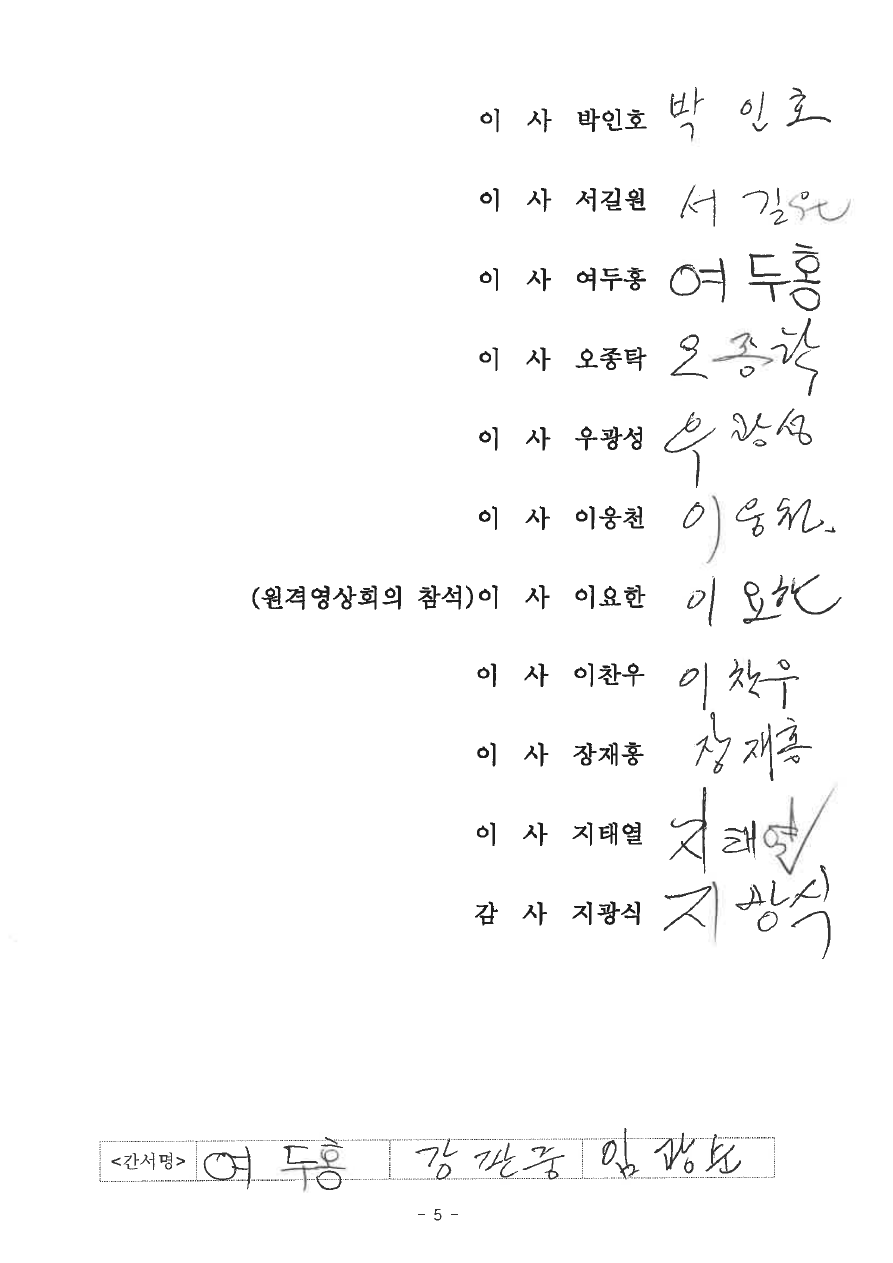 이 사 박인호 박 인 호
이 사 서길원 서 길원
이 사 여두홍 여 두홍
이 사 오종탁 오 종탁
이 사 우광성 우 광성
이 사 이웅천 이 웅천
(원격영상회의 참석)이 사 이요한 이 요한
이 사 이찬우 이 찬우
이 사 장재흥 장 재흥
이 사 지태열 지 태열
감 사 지광식 지 광식
<간서명> 여 두홍 강 판중 임 광
- 5 -